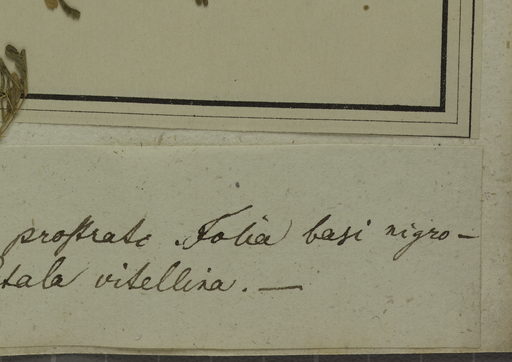 prostrato. Folia basi nigro-
tala vitellina. —